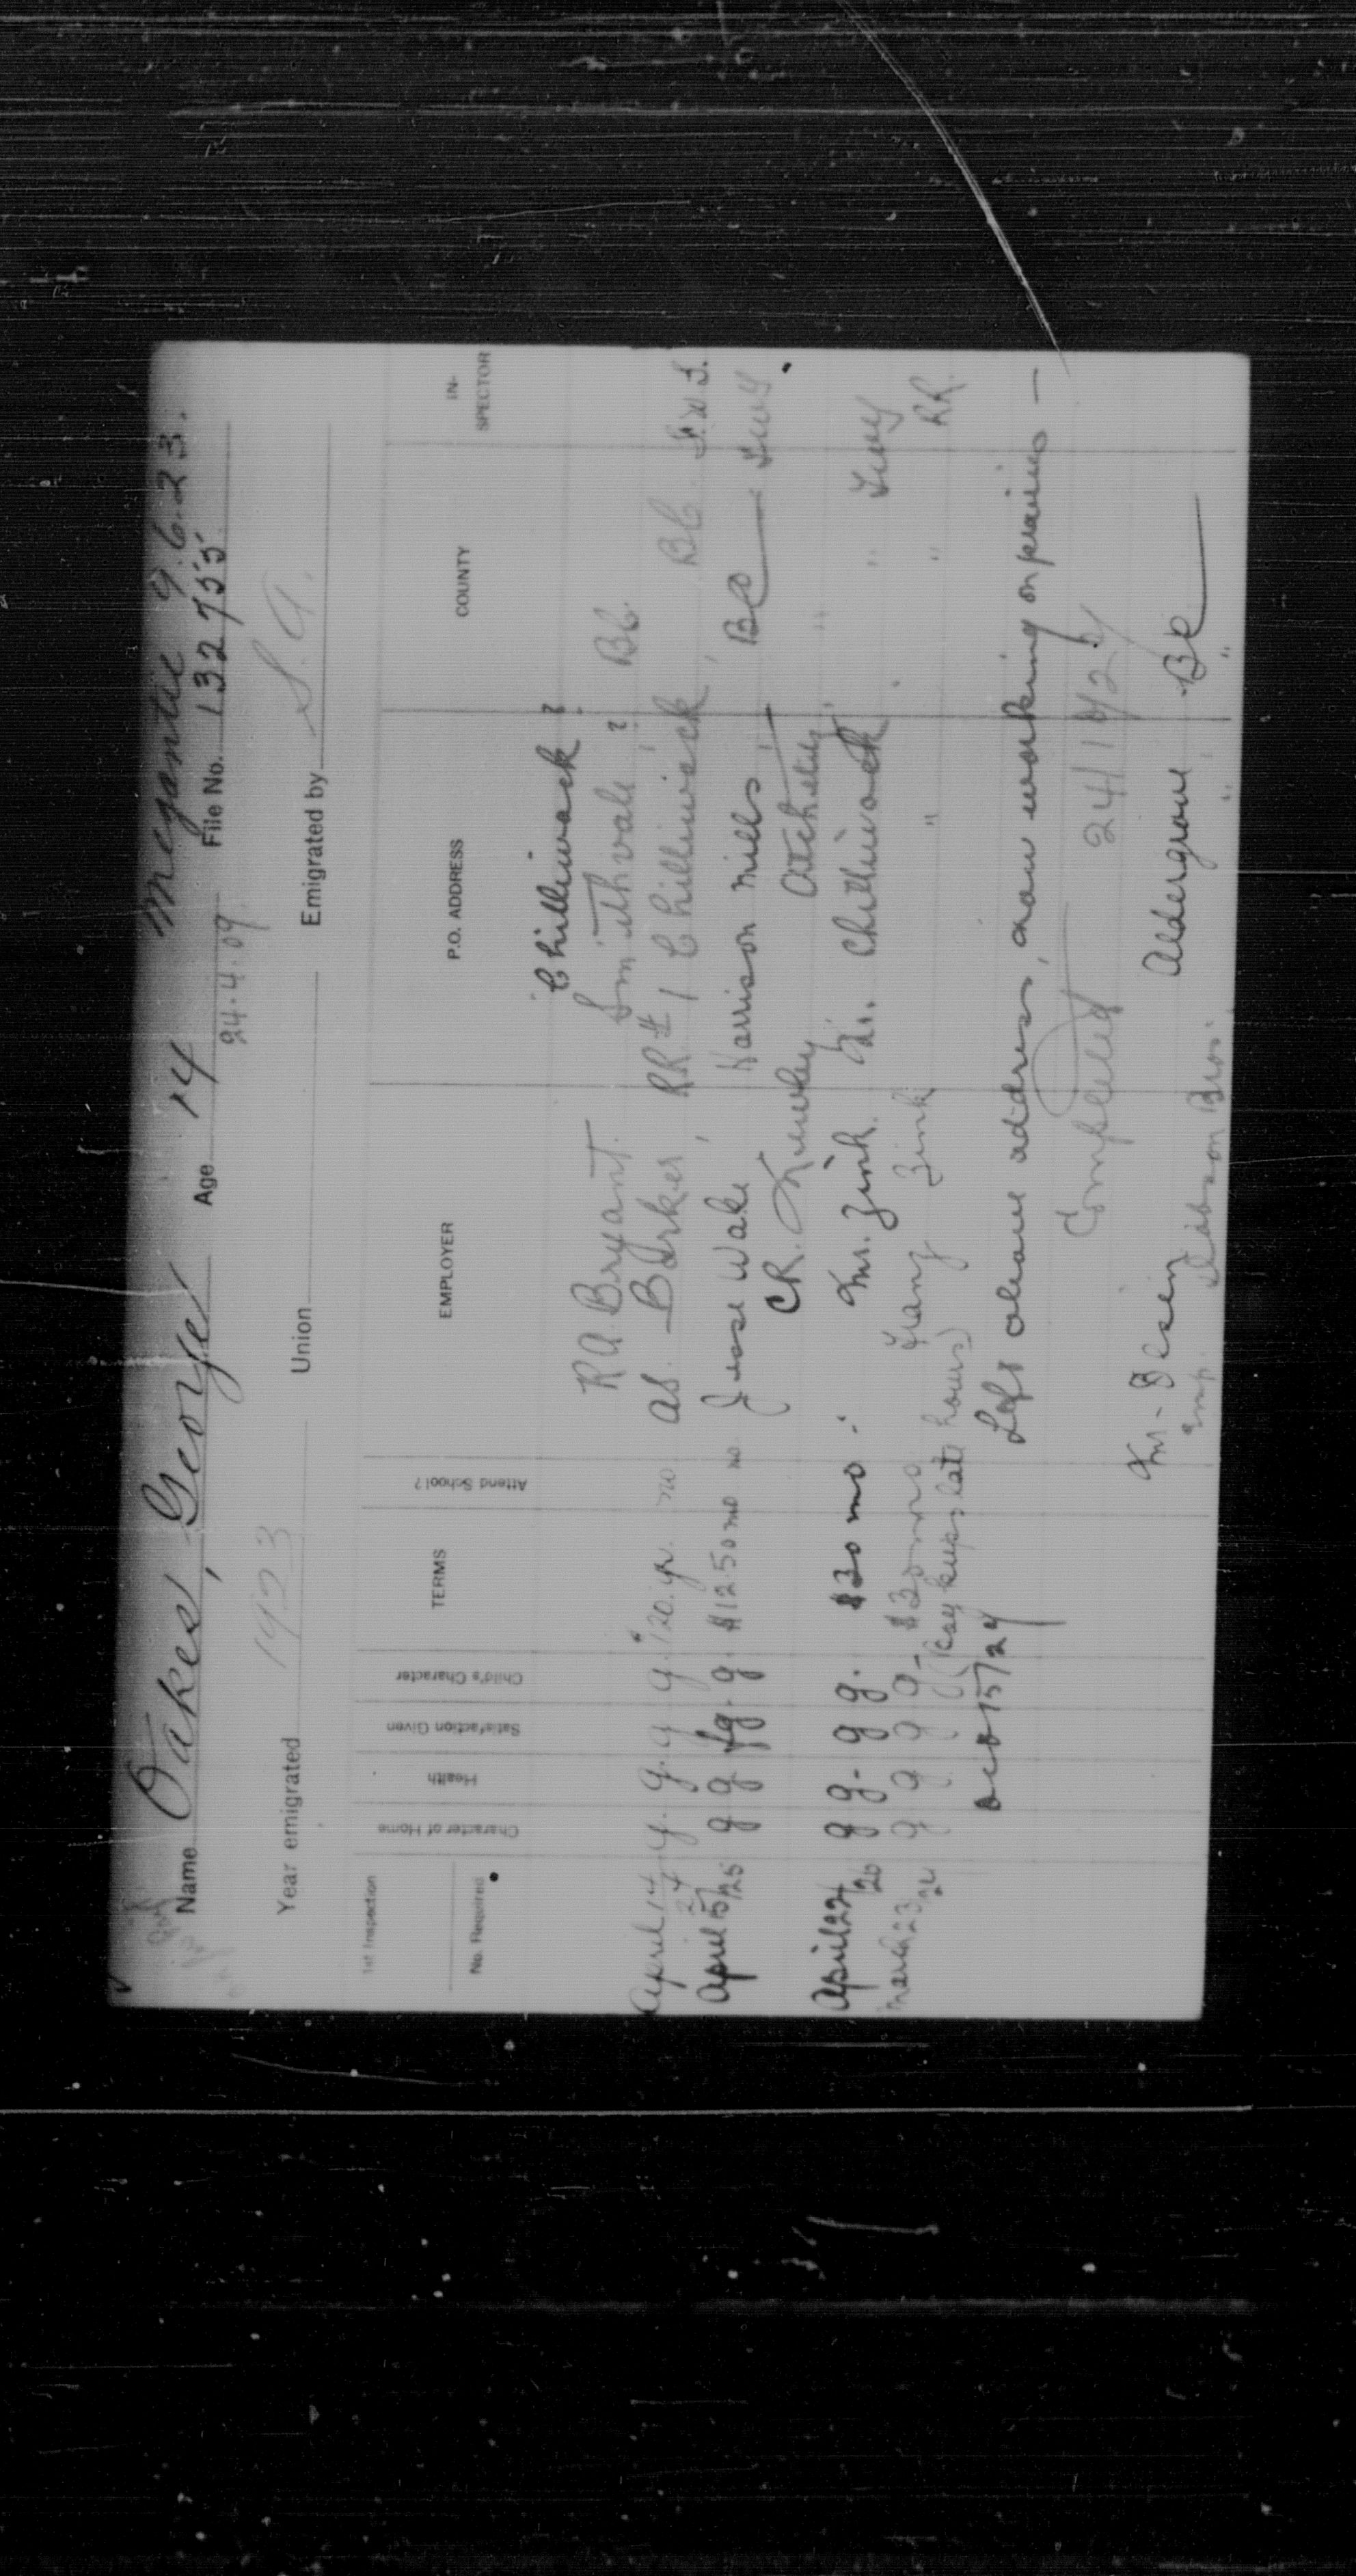 Megantic 9.6.23.
Name Oakes, George Age 14 File No. 132755
24.4.09.
Year emigrated 1923 Union Emigrated by S.A.
1st Inspection
No. Required
Character of Home Health Satisfaction Given Child's Character TERMS Attend School? EMPLOYER P.O. ADDRESS COUNTY IN-SPECTOR
Chilliwack ?
R A Bryant. Smithvale ? BC.
April 14/24 g. g. g g. $120. yr. no as. Barker, RR #1 Chilliwack, BC.
April 15/25 g g fg. g $12.50 mo no Jesse Wake Harrison Mills BC
CR. Atchelitz "
April 22/26 g g. g g. $30 mo. Mr. Zink. Chilliwack "
March 23 g g g g. $30 mo Franz Zink " " RR.
(Boy keeps late hours)
Oct 15/27 Left above address, now working on prairies —
Completed
Mr. Aldergrove BC
Emp. Bros. " "